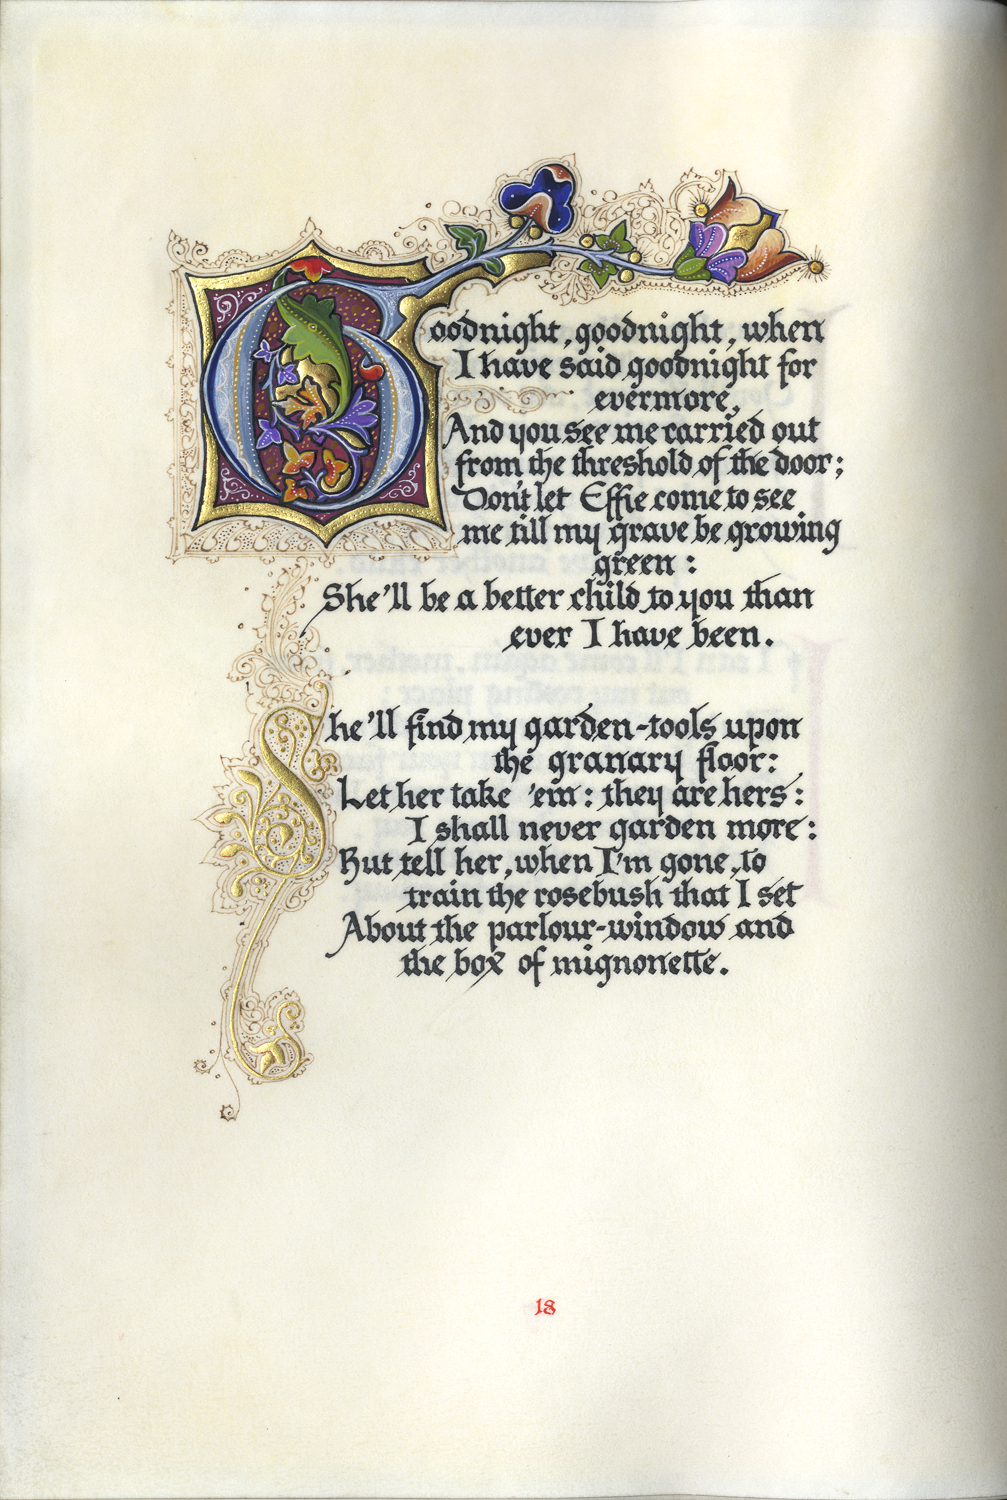 Goodnight, goodnight, when
I have said goodnight for
evermore,
And you see me carried out
from the threshold of the door;
Don't let Effie come to see
me till my grave be growing
green:
She'll be a better child to you than
ever I have been.
She'll find my garden-tools upon
the granary floor:
Let her take 'em: they are hers:
I shall never garden more:
But tell her, when I'm gone, to
train the rosebush that I set
About the parlour-window and
the box of mignonette.
18